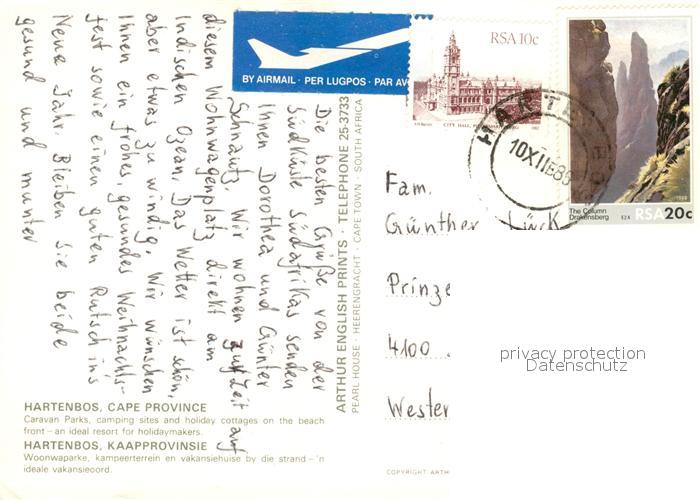 Die besten Grüße von der
Südküste Südafrikas senden
Ihnen Dorothea und Günter
Schnautz. Wir wohnen zur Zeit auf
diesem Wohnwagenplatz direkt am
Indischen Ozean. Das Wetter ist schön,
aber etwas zu windig. Wir wünschen
Ihnen ein frohes, gesundes Weihnachts-
fest sowie einen guten Rutsch in's
Neue Jahr. Bleiben sie beide
gesund und munter
BY AIRMAIL · PER LUGPOS · PAR AV
RSA 10c
CITY HALL,
1982
HARTE
10XII
The Column
Drakensberg
RSA 20c
Fam.
Günther Lück
Prinze
4100
Wester
privacy protection
Datenschutz
ARTHUR ENGLISH PRINTS · TELEPHONE 25-3733
PEARL HOUSE · HEERENGRACHT · CAPE TOWN · SOUTH AFRICA
HARTENBOS, CAPE PROVINCE
Caravan Parks, camping sites and holiday cottages on the beach
front – an ideal resort for holidaymakers.
HARTENBOS, KAAPPROVINSIE
Woonwaparke, kampeerterrein en vakansiehuise by die strand – 'n
ideale vakansieoord.
COPYRIGHT ARTH